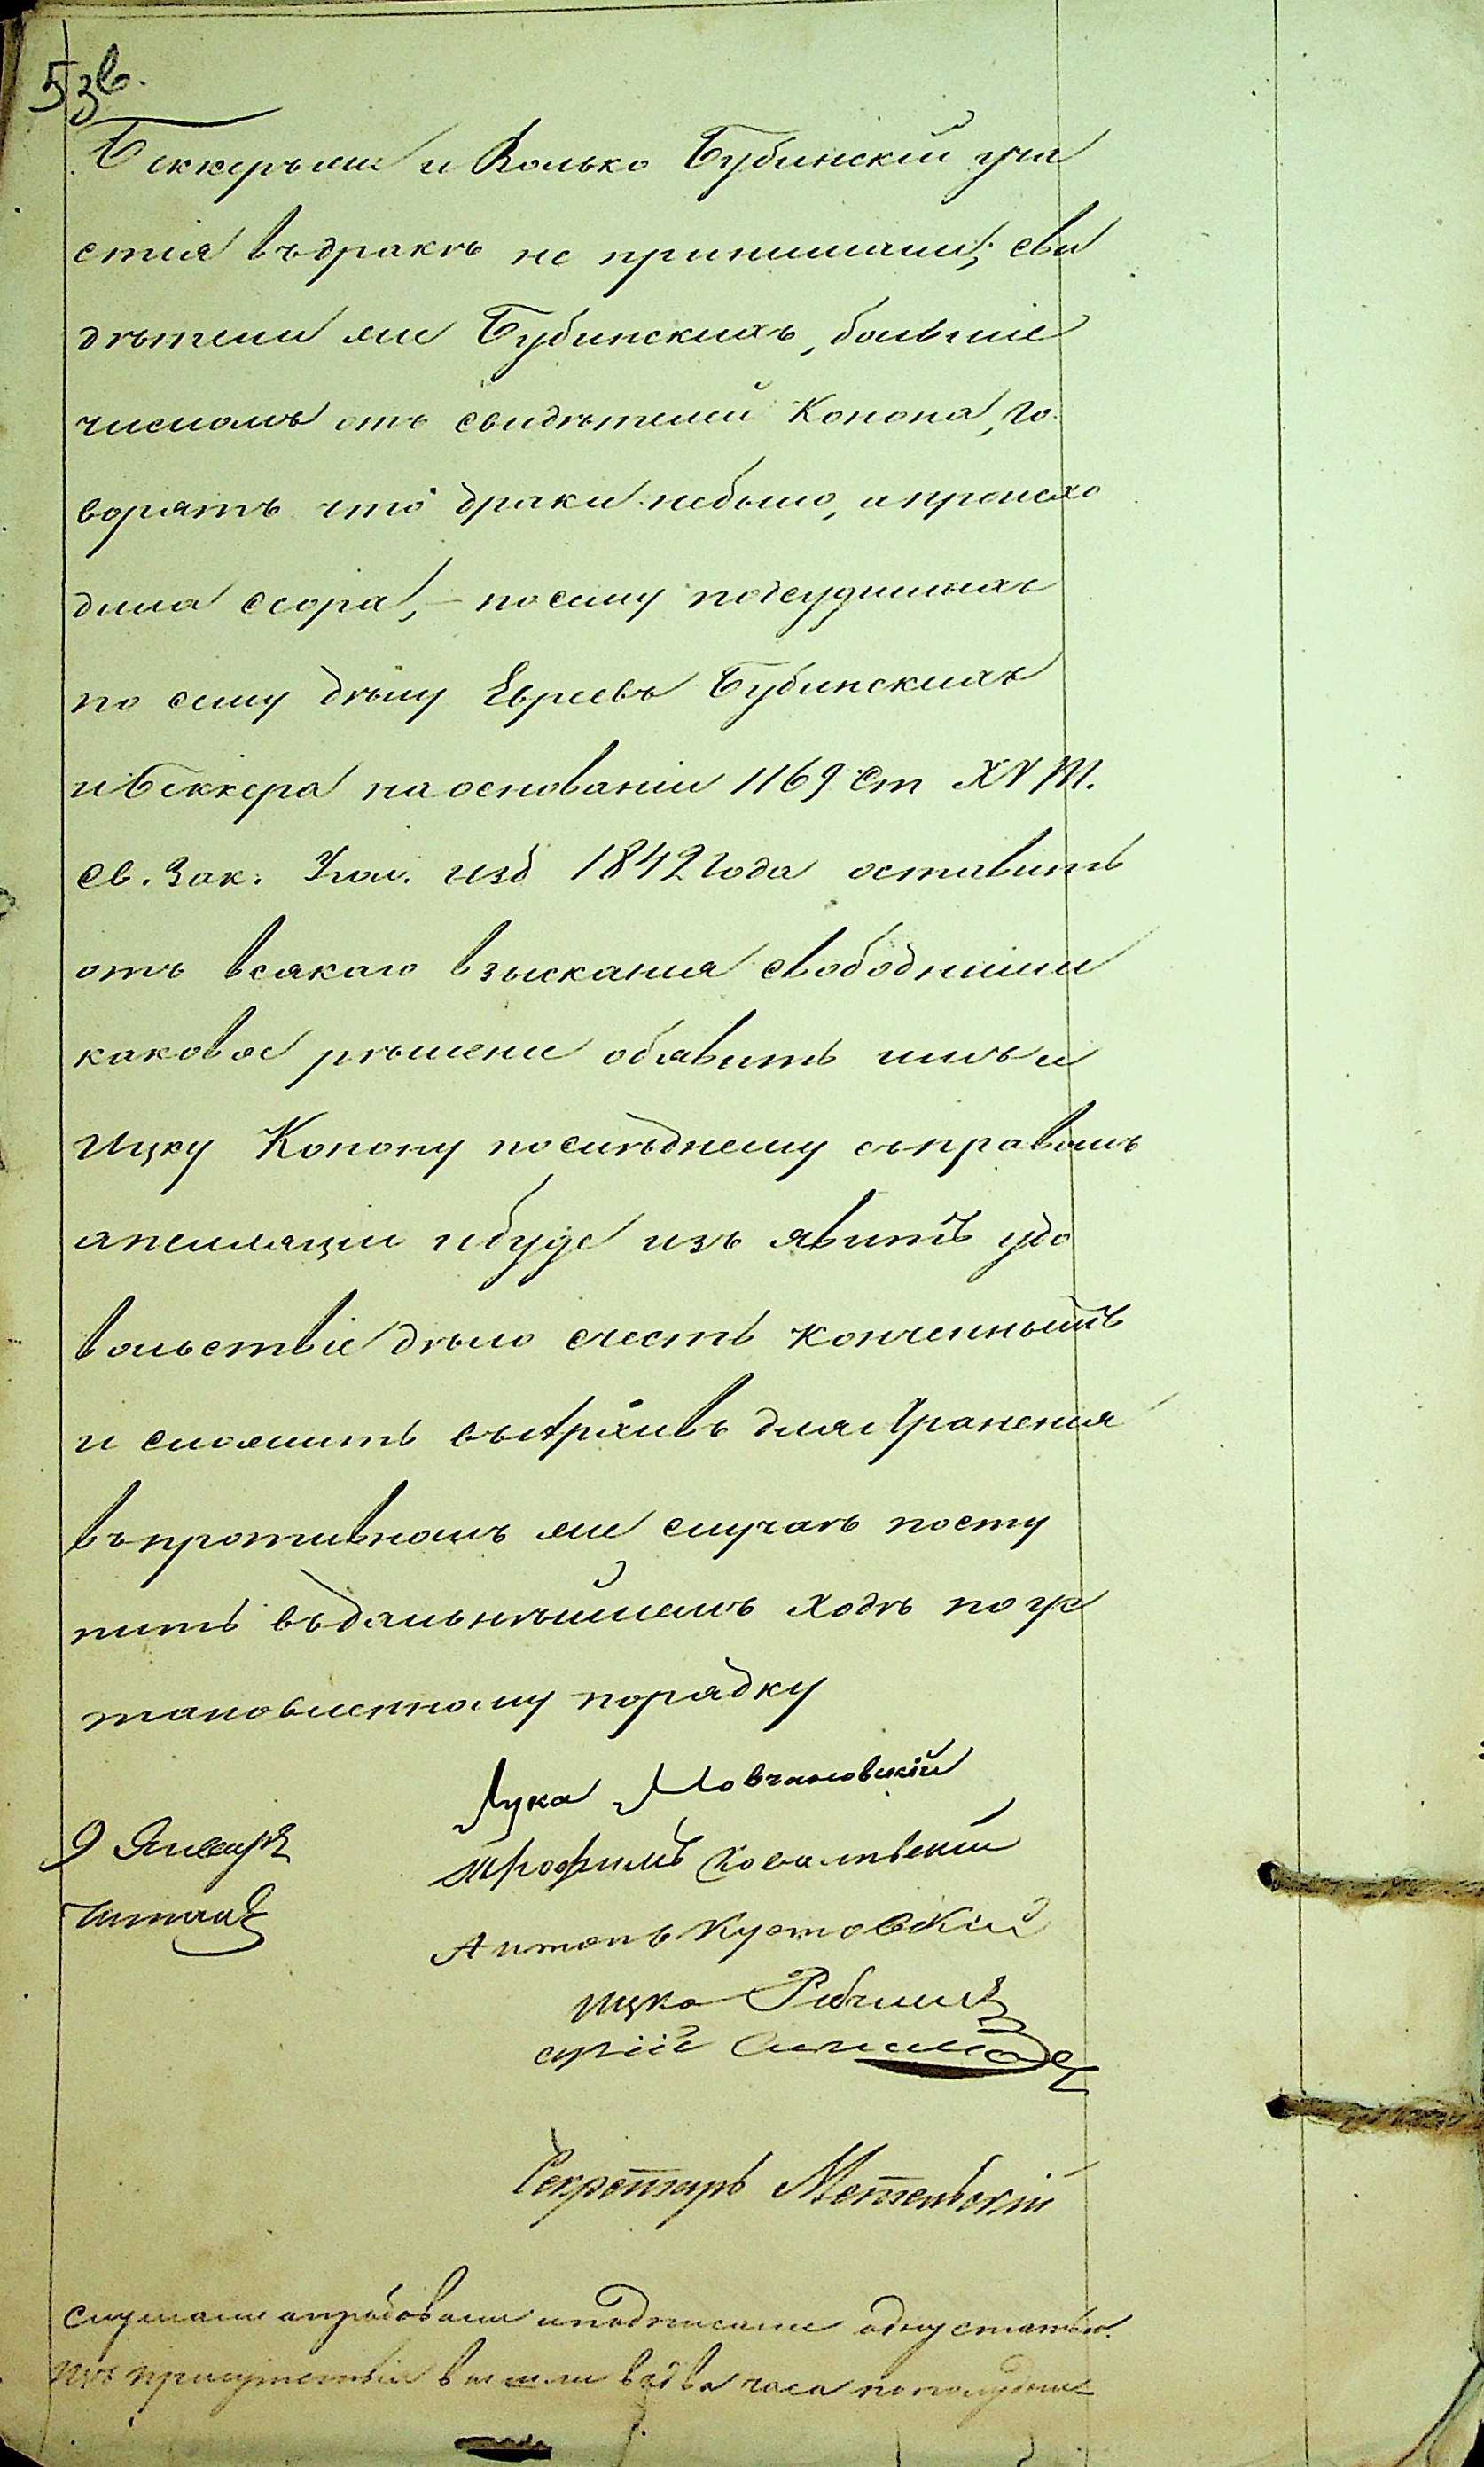 53 об.
Беккеръ ли и Волько Бубинскій уча
стія въ дракѣ не принимали; сви
дѣтели же Бубинскихъ, больше
числомъ отъ свидѣтелей Конона, го
ворятъ что драки небыло, а происхо
дила ссора, – посему подсудимыхъ
по сему дѣлу Евреевъ Бубинскихъ
и Беккера на основаніи 1169 Ст XV Т.
Св. Зак. Угол. изд 1842 года оставить
отъ всякаго взысканія свободными
каковое рѣшени объявить имъ и
Ицку Конону послѣднему съ правомъ
апелляціи и буде изъ явитъ удо
вольствіе дѣло счесть конченнымъ
и сложить въ Архивъ для храненія
въ противномъ же случаѣ посту
пить въ дальнѣйшемъ ходѣ по ус
тановленному порядку
Лука Мовчановскій
9 Января
Трофимъ Ковалевскій
Читалъ
Антонъ Кустовскій
Ицко
Секретарь Метельскій
Слушали апробовали и подписали одну статью.
Изъ присутствія вышли въ два часа пополудни